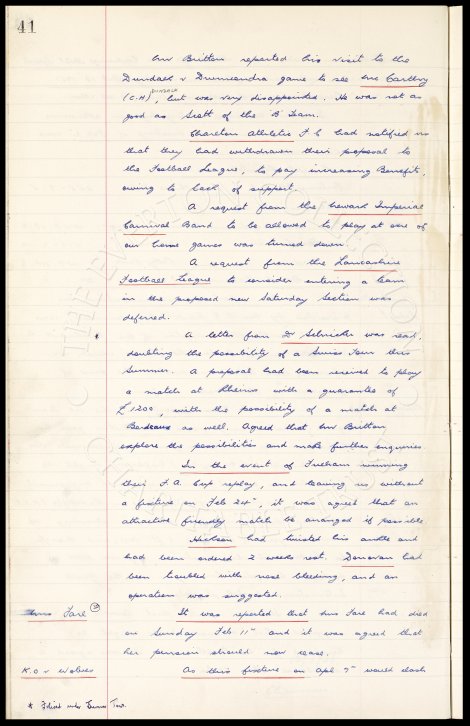 41
Mr Britton reported his visit to the
Dundalk v Drumcondra game to see Mc Carthy
DUNDALK
(C.H), but was very disappointed. He was not as
good as Scott of the B Team.
Charlton Athletic F C had notified us
that they had withdrawn their proposal to
the Football League, to pay increasing Benefits,
owing to lack of support.
A request from the Imperial
Carnival Band to be allowed to play at one of
our home games was turned down.
A request from the Lancashire
Football League to consider entering a team
in the proposed new Saturday Section was
deferred.
* A letter from Dr Schricker was read,
doubting the possibility of a Swiss Tour this
Summer. A proposal had been received to play
a match at Rheims with a guarantee of
£1200, with the possibility of a match at
Bordeaux as well. Agreed that Mr Britton
explore the possibilities and make further enquiries.
In the event of Fulham winning
their F.A. Cup replay, and leaving us without
a fixture on Feb 24th, it was agreed that an
attractive friendly match be arranged if possible
Hickson had twisted his ankle and
had been ordered 2 weeks rest. Donovan had
been troubled with nose bleeding, and an
operation was suggested.
Mrs Fare It was reported that Mrs Fare had died
on Sunday Feb 11th and it was agreed that
her pension should now cease.
K.O v Wolves As this fixture on Apl 7th would clash
* Filed under Tour